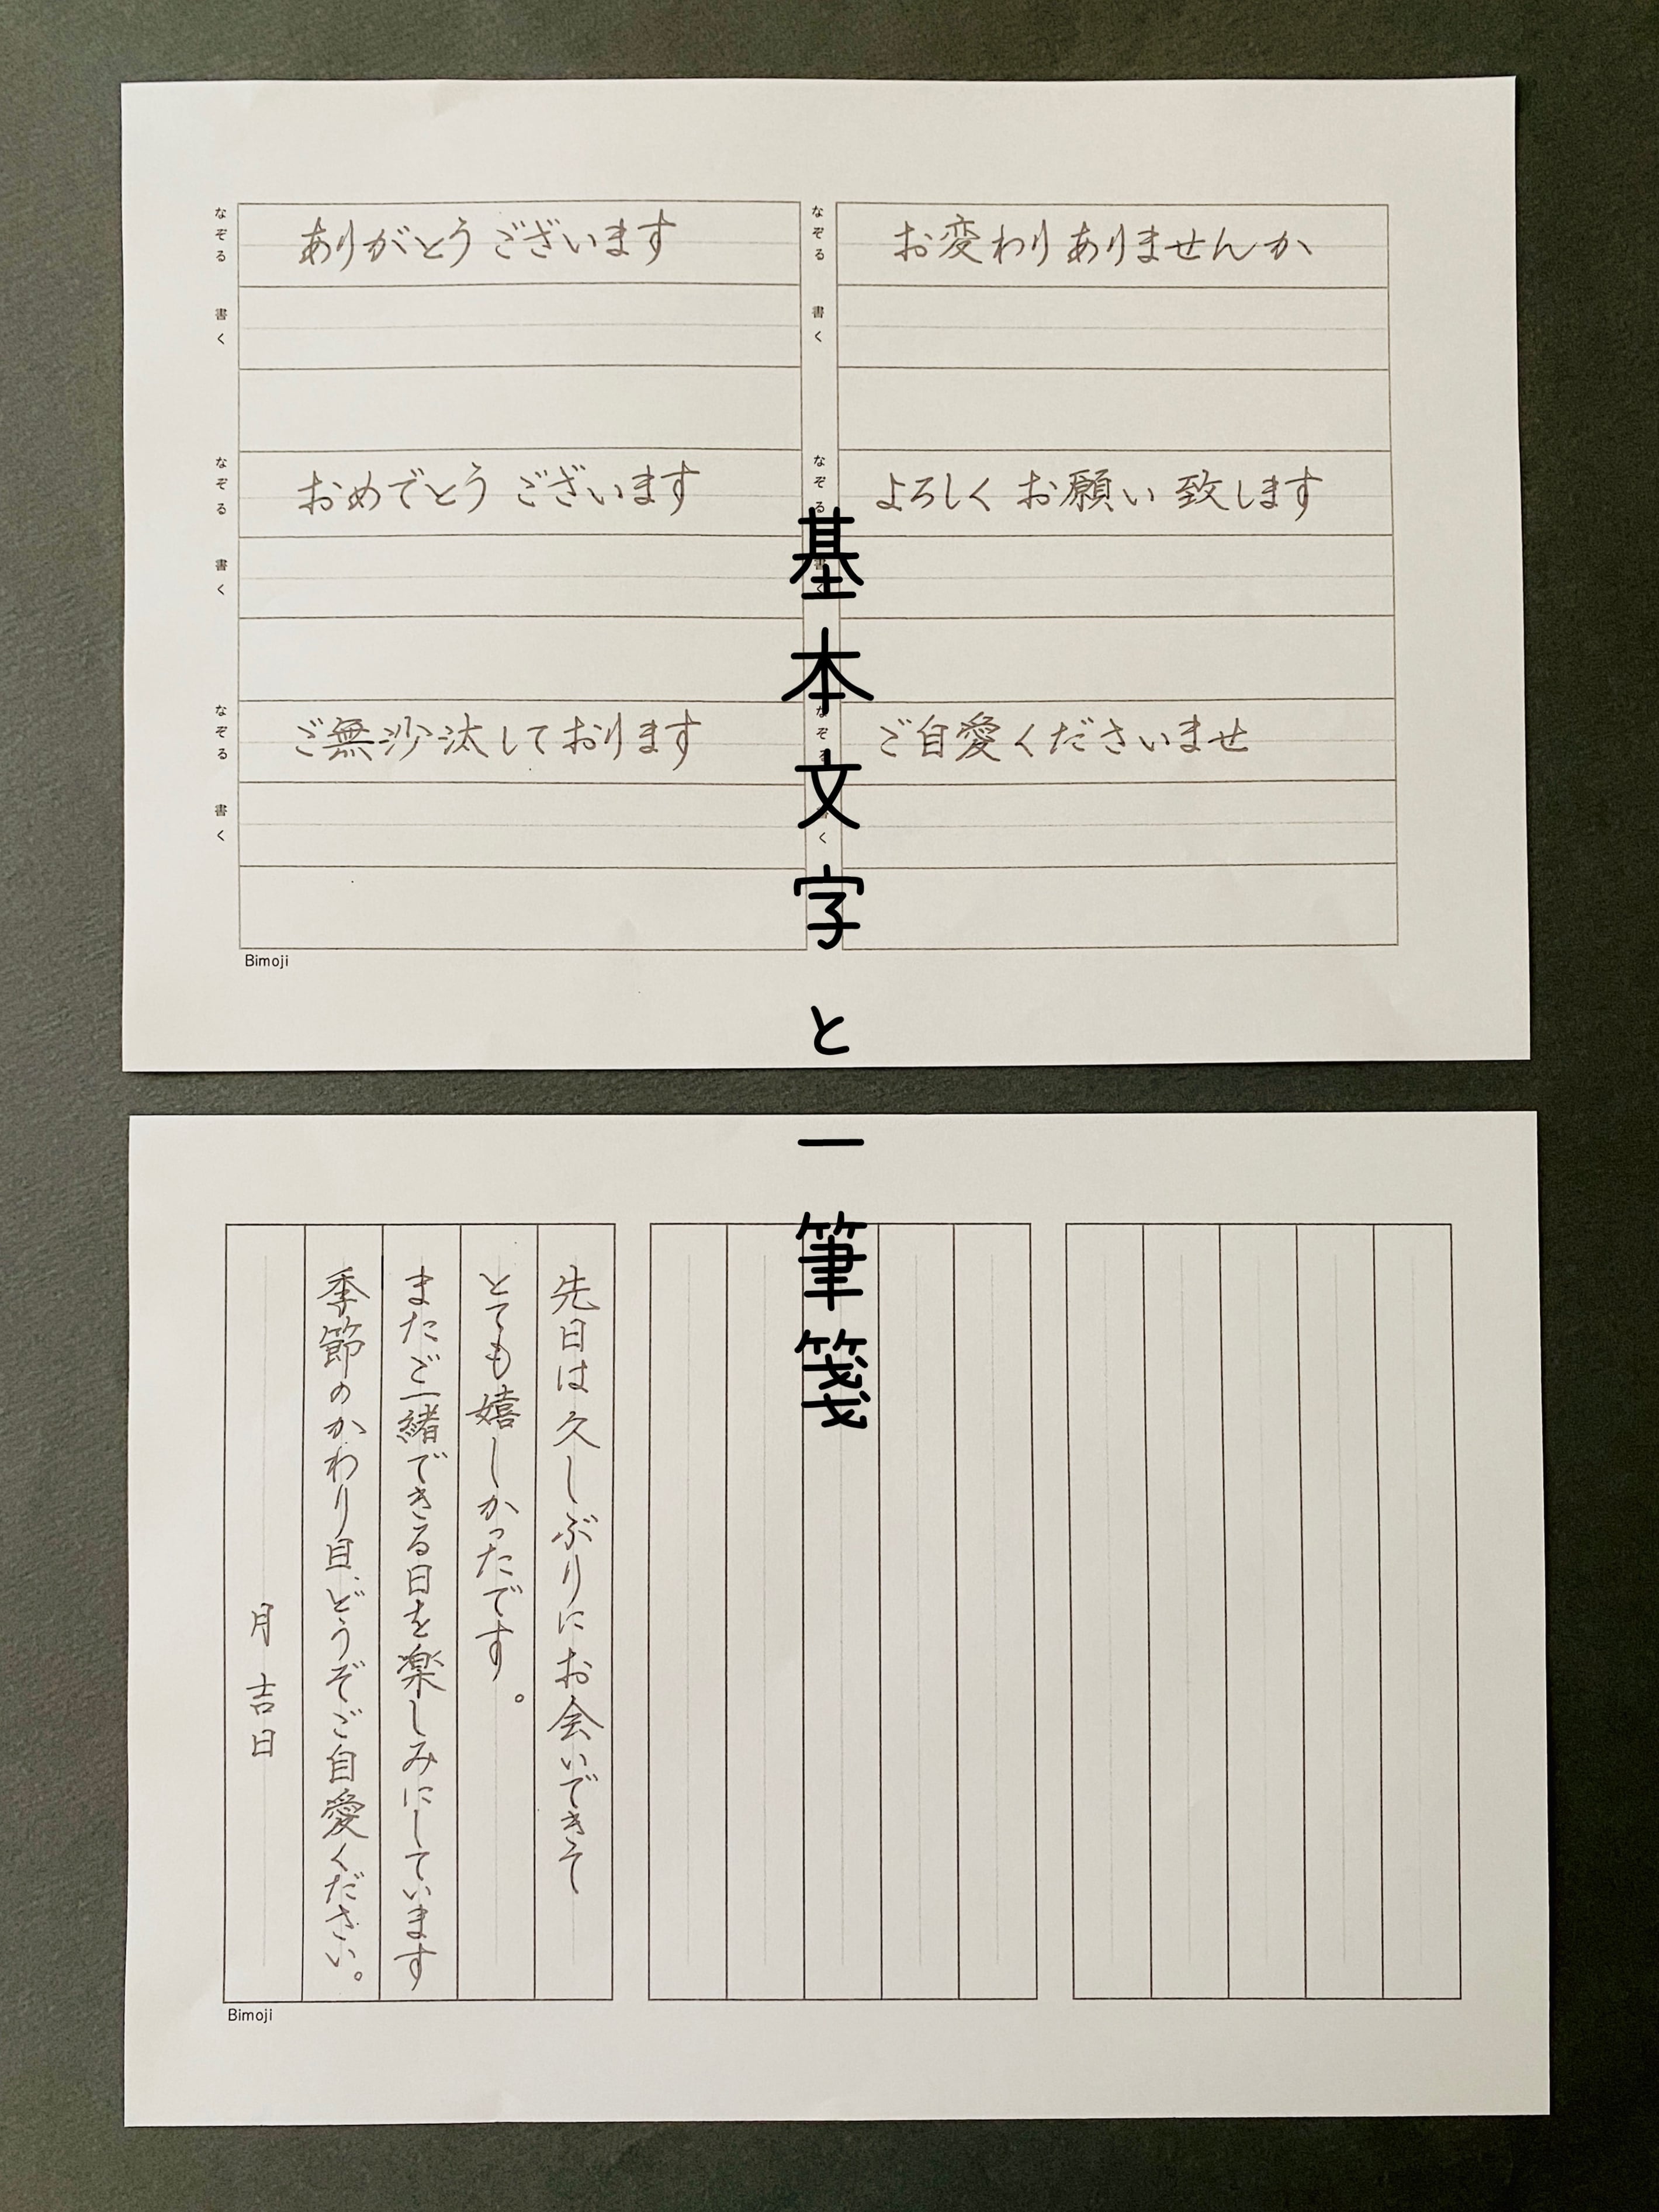 なぞる
ありがとうございます
書く
なぞる
おめでとうございます
書く
なぞる
ご無沙汰しております
書く
なぞる
お変わりありませんか
書く
なぞる
よろしくお願い致します
書く
なぞる
ご自愛くださいませ
書く
Bimoji
基本文字と一筆箋
先日は久しぶりにお会いできて
とても嬉しかったです。
またご一緒できる日を楽しみにしています
季節のかわり目、どうぞご自愛ください。
月 吉日
Bimoji